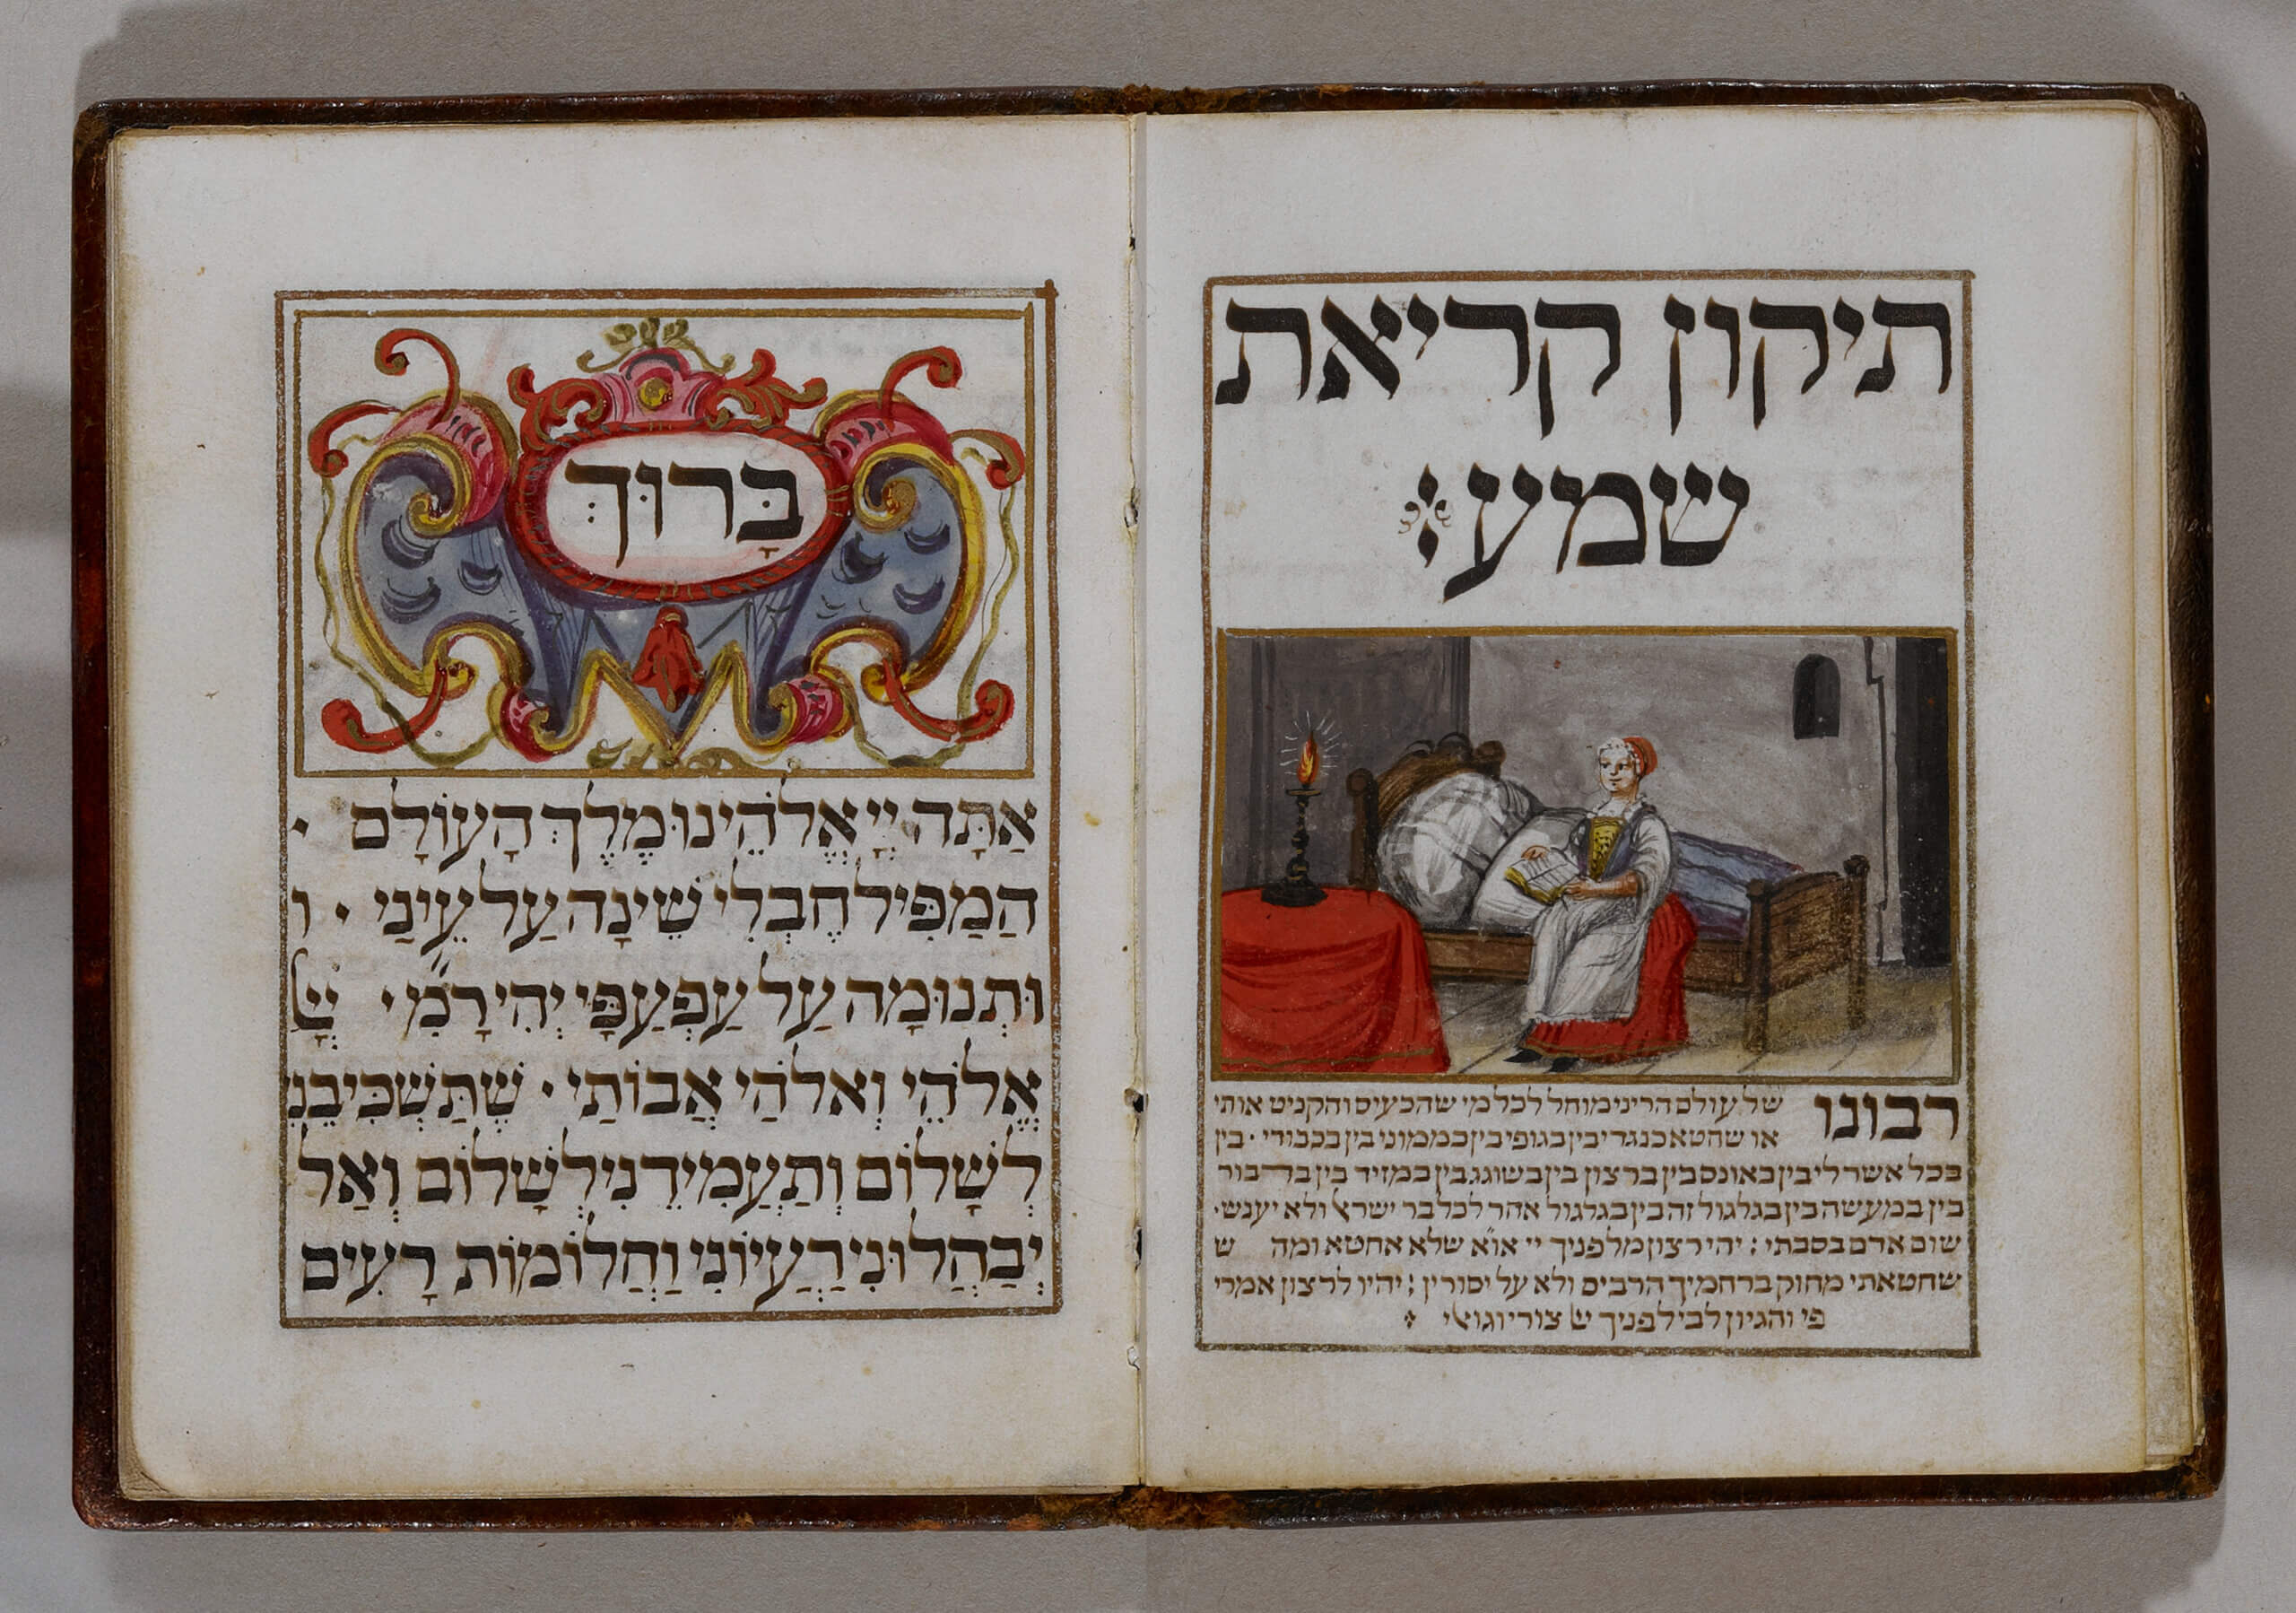 תיקון קריאת
שמע
רבונו של עולם הריני מוחל לכל מי שהכעיס והקניט אותי
או שחטא כנגדי בין בגופי בין בממוני בין בכבודי · בין
בכל אשר לי בין באונס בין ברצון בין בשוגג בין במזיד בין בדבור
בין במעשה בין בגלגול זה בין בגלגול אחר לכל בר ישראל ולא יענש ·
שום אדם בסבתי : יהי רצון מלפניך יי או״א שלא אחטא ומה ש
שחטאתי מחוק ברחמיך הרבים ולא על יסורין : יהיו לרצון אמרי
פי והגיון לבי לפניך יי צורי וגואלי
בָּרוּךְ
אַתָּה יְיָ אֱלֹהֵינוּ מֶלֶךְ הָעוֹלָם ·
הַמַפִּיל חֶבְלִי שֵׁינָה עַל עֵינַי · ו
וּתְנוּמָה עַל עַפְעַפָּי יְהִי רָמִ״י
אֱלֹהֵי וְאלֹהַי אֲבוֹתַי · שֶׁתַּשְׁכִּיבֵנִי
לְשָׁלוֹם וְתַעֲמִידֵנִי לְשָׁלוֹם וְאַל
יְבַהֲלוּנִי רַעְיוֹנִי וַחֲלוֹמוֹת רָעִים